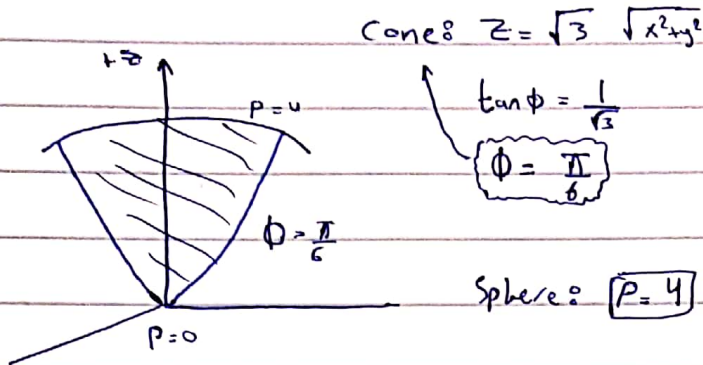 Cone: Z = √3 √x²+y²
+z
ρ=4
tan ϕ = 1/√3
ϕ = π/6
ϕ = π/6
Sphere: ρ=4
ρ=0